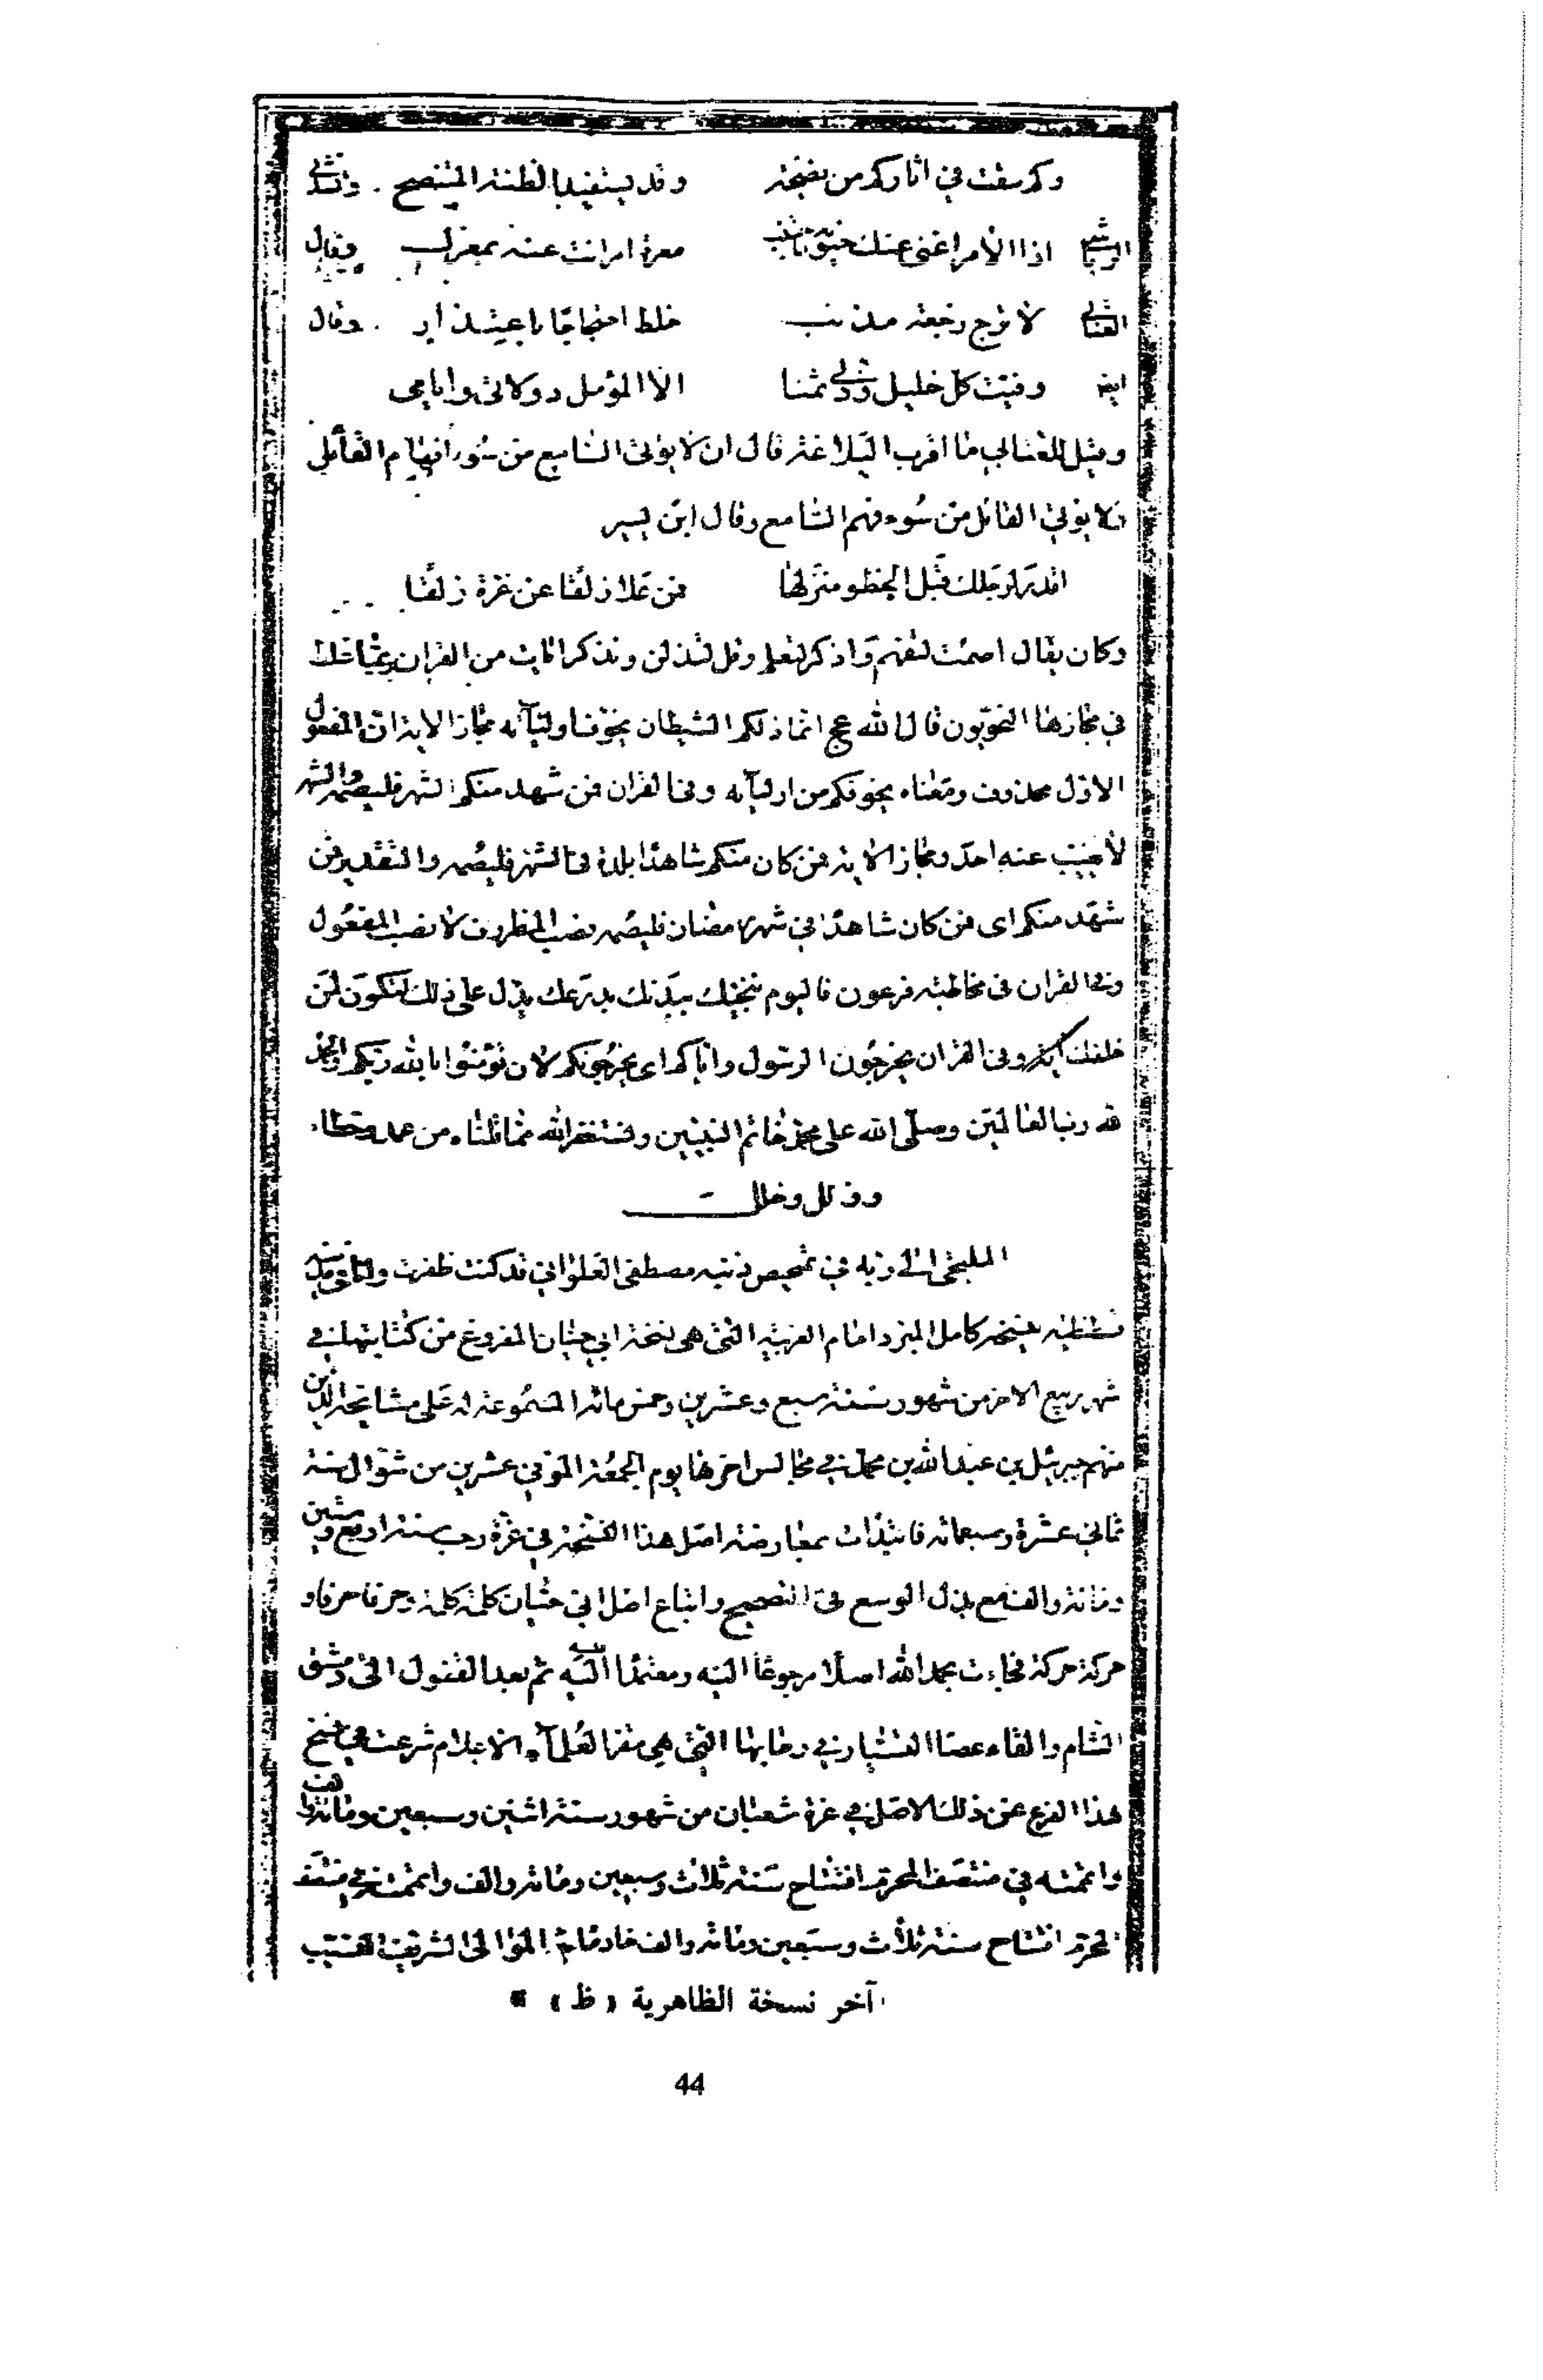 وكم سقت في اثاركم من نصيحة وقد يستفيد الظنة المتنصح . وانشدني
الرياشي اذا الأمر اغنى عنك معرة امر انت عنه بمعزل وقال
العتابي لا ترج رجعة مذنب خلط احتجاجا باعتذار . وقال
ايضا وفيت كل خليل ودني ثمنا الا المؤمل دولاتي وايامي
وقيل للعتابي ما اقرب البلاغة قال ان لا يؤتى السامع من سوء افهام القائل
ولا يؤتى القائل من سوء فهم السامع وقال ابن يسير
اقدر لرجلك قبل الخطو منزلها فمن علا زلقا عن غرة زلقا
وكان يقال اصمت لتفهم واذكر لتعلم وقل لتذلن ونذكر ايات من القران ربما غلط
في مجازها النحويون قال الله عج انما ذلكم الشيطان يخوف اولياءه مجاز الاية ان المفعول
الاول محذوف ومعناه يخوفكم من اوليآئه وفي القران فمن شهد منكم الشهر فليصمه والشهر
لا يغيب عنه احد ومجاز الاية فمن كان منكم شاهدا بلده في الشهر فليصمه والتقدير فمن
شهد منكم اى فمن كان شاهدا في شهر رمضان فليصمه نصب الظروف لا نصب المفعول
وفي القران في مخاطبة فرعون فاليوم ننجيك ببدنك بدرعك يدل على ذلك لتكون لمن
خلفك آية وفي القران يخرجون الرسول واياكم اى يخرجونكم لان تؤمنوا بالله ربكم والحمد
لله رب العالمين وصلى الله على محمد خاتم النبيين ونستغفر الله مما قلناه من عمد وخطاء
وزلل وخلل
الملتجئ الى ربه في تمحيص ذنبه مصطفى العلواني قد كنت ظفرت وانا في مدينة
قسطنطينية بنسخة كامل المبرد امام العربية التي هي نسخة ابي حيان المفروغ من كتابتها في
شهر ربيع الاخر من شهور سنة سبع وعشرين وخمس مائة المسموعة له على مشايخه الذين
منهم جبريئل بن عبد الله بن محمد في مجالس اخرها يوم الجمعة الموفي عشرين من شوال سنة
ثماني عشرة وسبعمائة فابتدات بمعارضة اصل هذا النسخة في غرة رجب سنة اربع وستين
ومائة والف مع بذل الوسع في التصحيح واتباع اصل ابي حيان كلمة كلمة وحرفا حرفا و
حركة حركة فجاءت بحمد الله اصلا مرجوعا اليه ومعتمدا عليه ثم بعد القفول الى دمشق
الشام والقاء عصا التسيار في رحابها التي هي مقر العلمآء الاعلام شرعت في نسخ
هذا الفرع عن ذلك الاصل في غرة شعبان من شهور سنة اثنتين وسبعين ومائة والف
واتممته في منتصف المحرم افتتاح سنة ثلاث وسبعين ومائة والف واتممته في منتصف
المحرم افتتاح سنة ثلاث وسبعين ومائة والف خادما به الموالى الشريف النقيب
آخر نسخة الظاهرية ( ظ )
44